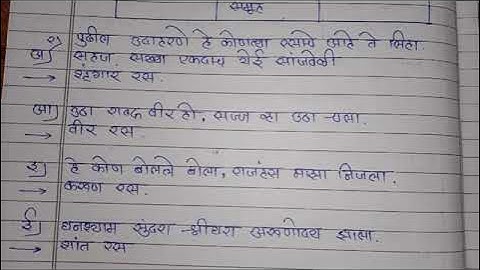 समूह
२) पुढील उदाहरणे हे कोणत्या रसाचे आहे ते लिहा.
अ) सहज सख्या एकटाच येई सांजवेळी
→ शृंगार रस.
आ) उठा राष्ट्र वीर हो, सज्ज व्हा उठा चला.
→ वीर रस.
इ) हे कोण बोलले बोला, राजहंस माझा निजला.
→ करुण रस.
ई) घनश्याम सुंदरा श्रीधरा अरुणोदय झाला.
→ शांत रस